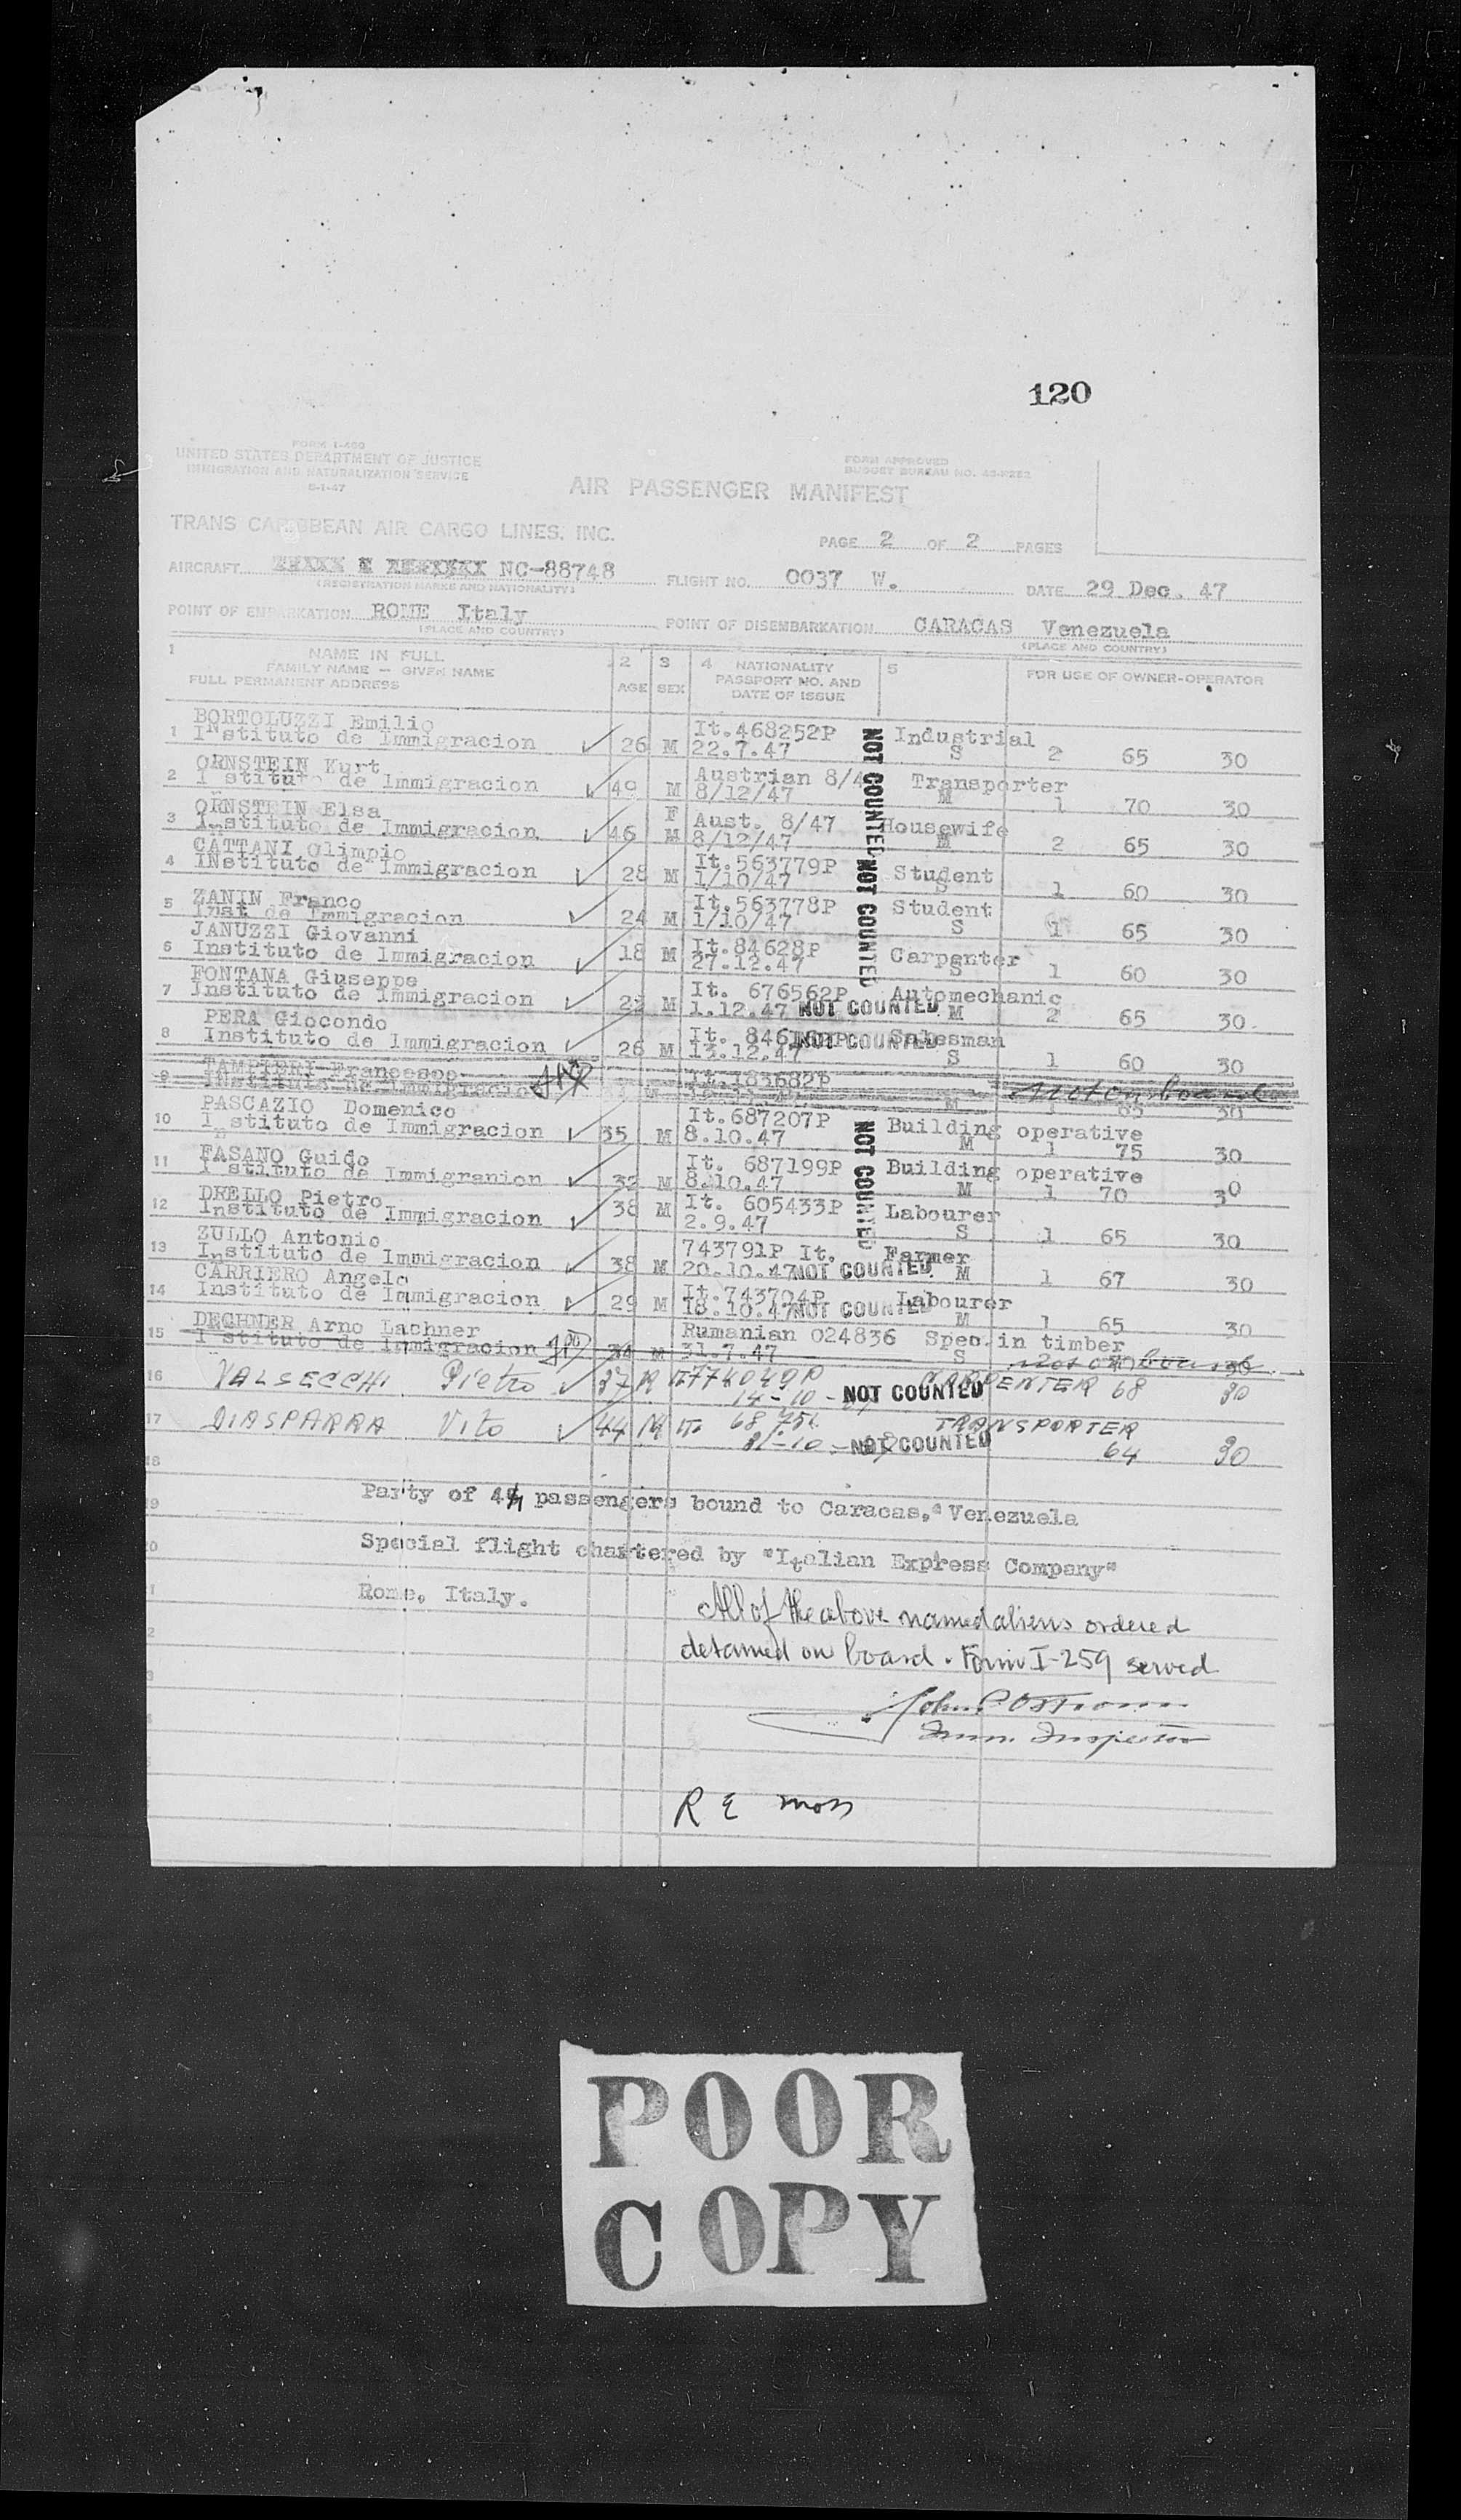 120
FORM I-466
UNITED STATES DEPARTMENT OF JUSTICE
IMMIGRATION AND NATURALIZATION SERVICE
8-1-47
FORM APPROVED
BUDGET BUREAU NO. 43-R252
AIR PASSENGER MANIFEST
TRANS CARIBBEAN AIR CARGO LINES, INC.
PAGE 2 OF 2 PAGES
AIRCRAFT NC-88748 FLIGHT NO. 0037 W. DATE 29 Dec. 47
(REGISTRATION MARKS AND NATIONALITY)
POINT OF EMBARKATION ROME Italy POINT OF DISEMBARKATION CARACAS Venezuela
(PLACE AND COUNTRY) (PLACE AND COUNTRY)
1 NAME IN FULL 2 3 4 NATIONALITY 5 FOR USE OF OWNER-OPERATOR
FAMILY NAME — GIVEN NAME AGE SEX PASSPORT NO. AND
FULL PERMANENT ADDRESS DATE OF ISSUE
BORTOLUZZI Emilio It.468252P Industrial
1 INstituto de Immigracion ✓ 26 M 22.7.47 S 2 65 30
ORNSTEIN Kurt Austrian 8/4 Transporter
2 Instituto de Immigracion ✓ 49 M 8/12/47 M 1 70 30
ORNSTEIN Elsa F Aust. 8/47 Housewife
3 Instituto de Immigracion ✓ 46 M 8/12/47 M 2 65 30
CATTANI Olimpio It.563779P Student
4 INstituto de Immigracion ✓ 28 M 1/10/47 S 1 60 30
ZANIN Franco It.563778P Student
5 Inst de Immigracion ✓ 24 M 1/10/47 S 1 65 30
JANUZZI Giovanni It.84628P Carpenter
6 Instituto de Immigracion ✓ 18 M 27.12.47 S 1 60 30
NOT COUNTED NOT COUNTED
FONTANA Giuseppe It. 676562P Automechanic
7 Instituto de Immigracion ✓ M 1.12.47 NOT COUNTED M 2 65 30
PERA Giocondo It. NOT COUNTED Salesman
8 Instituto de Immigracion ✓ 26 M 13.12.47 S 1 60 30
TAMPIERI Francesco It.183682P Not on board
9 Instituto de Immigracion M 1 65 30
PASCAZIO Domenico It.687207P Building operative
10 Instituto de Immigracion ✓ 35 M 8.10.47 M 1 75 30
FASANO Guido It. 687199P Building operative
11 Instituto de Immigranion ✓ 32 M 8.10.47 M 1 70 30
DRELLO Pietro It. 605433P Labourer
12 Instituto de Immigracion ✓ 38 M 2.9.47 S 1 65 30
NOT COUNTED
ZULLO Antonio 743791P It. Farmer
13 Instituto de Immigracion ✓ 38 M 20.10.47 NOT COUNTED M 1 67 30
CARRIERO Angelo It.743704P Labourer
14 Instituto de Immigracion ✓ 29 M 18.10.47 NOT COUNTED M 1 65 30
DECHNER Arno Lachner Rumanian 024836 Spec.in timber
15 Instituto de Immigracion 34 M 31.7.47 S not on board 30
16 VALSECCHI Pietro ✓ 37 M IT 774049P CARPENTER 68 30
14-10- NOT COUNTED
17 DIASPARRA Vito ✓ 44 M IT. TRANSPORTER
NOT COUNTED 64 30
18
19 Party of passengers bound to Caracas, Venezuela
20 Special flight chartered by "Italian Express Company"
Rome, Italy.
All of the above named aliens ordered
detained on board. Form I-259 served
Imm. Inspector
R E Moss
POOR
COPY